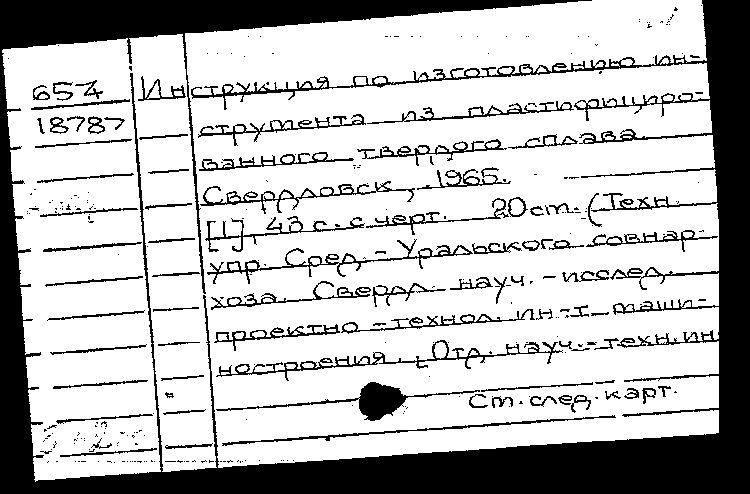 657 Инструкция по изготовлению ин-
18787 струмента из пластифициро-
ванного твердого сплава.
Свердловск, 1965.
[1], 43 с. с черт. 20 cm. (Техн.
упр. Сред.-Уральского совнар-
хоза. Свердл. науч.-исслед.
проектно-технол. ин-т маши-
ностроения. Отд. науч.-техн. ин
Ст. след. карт.